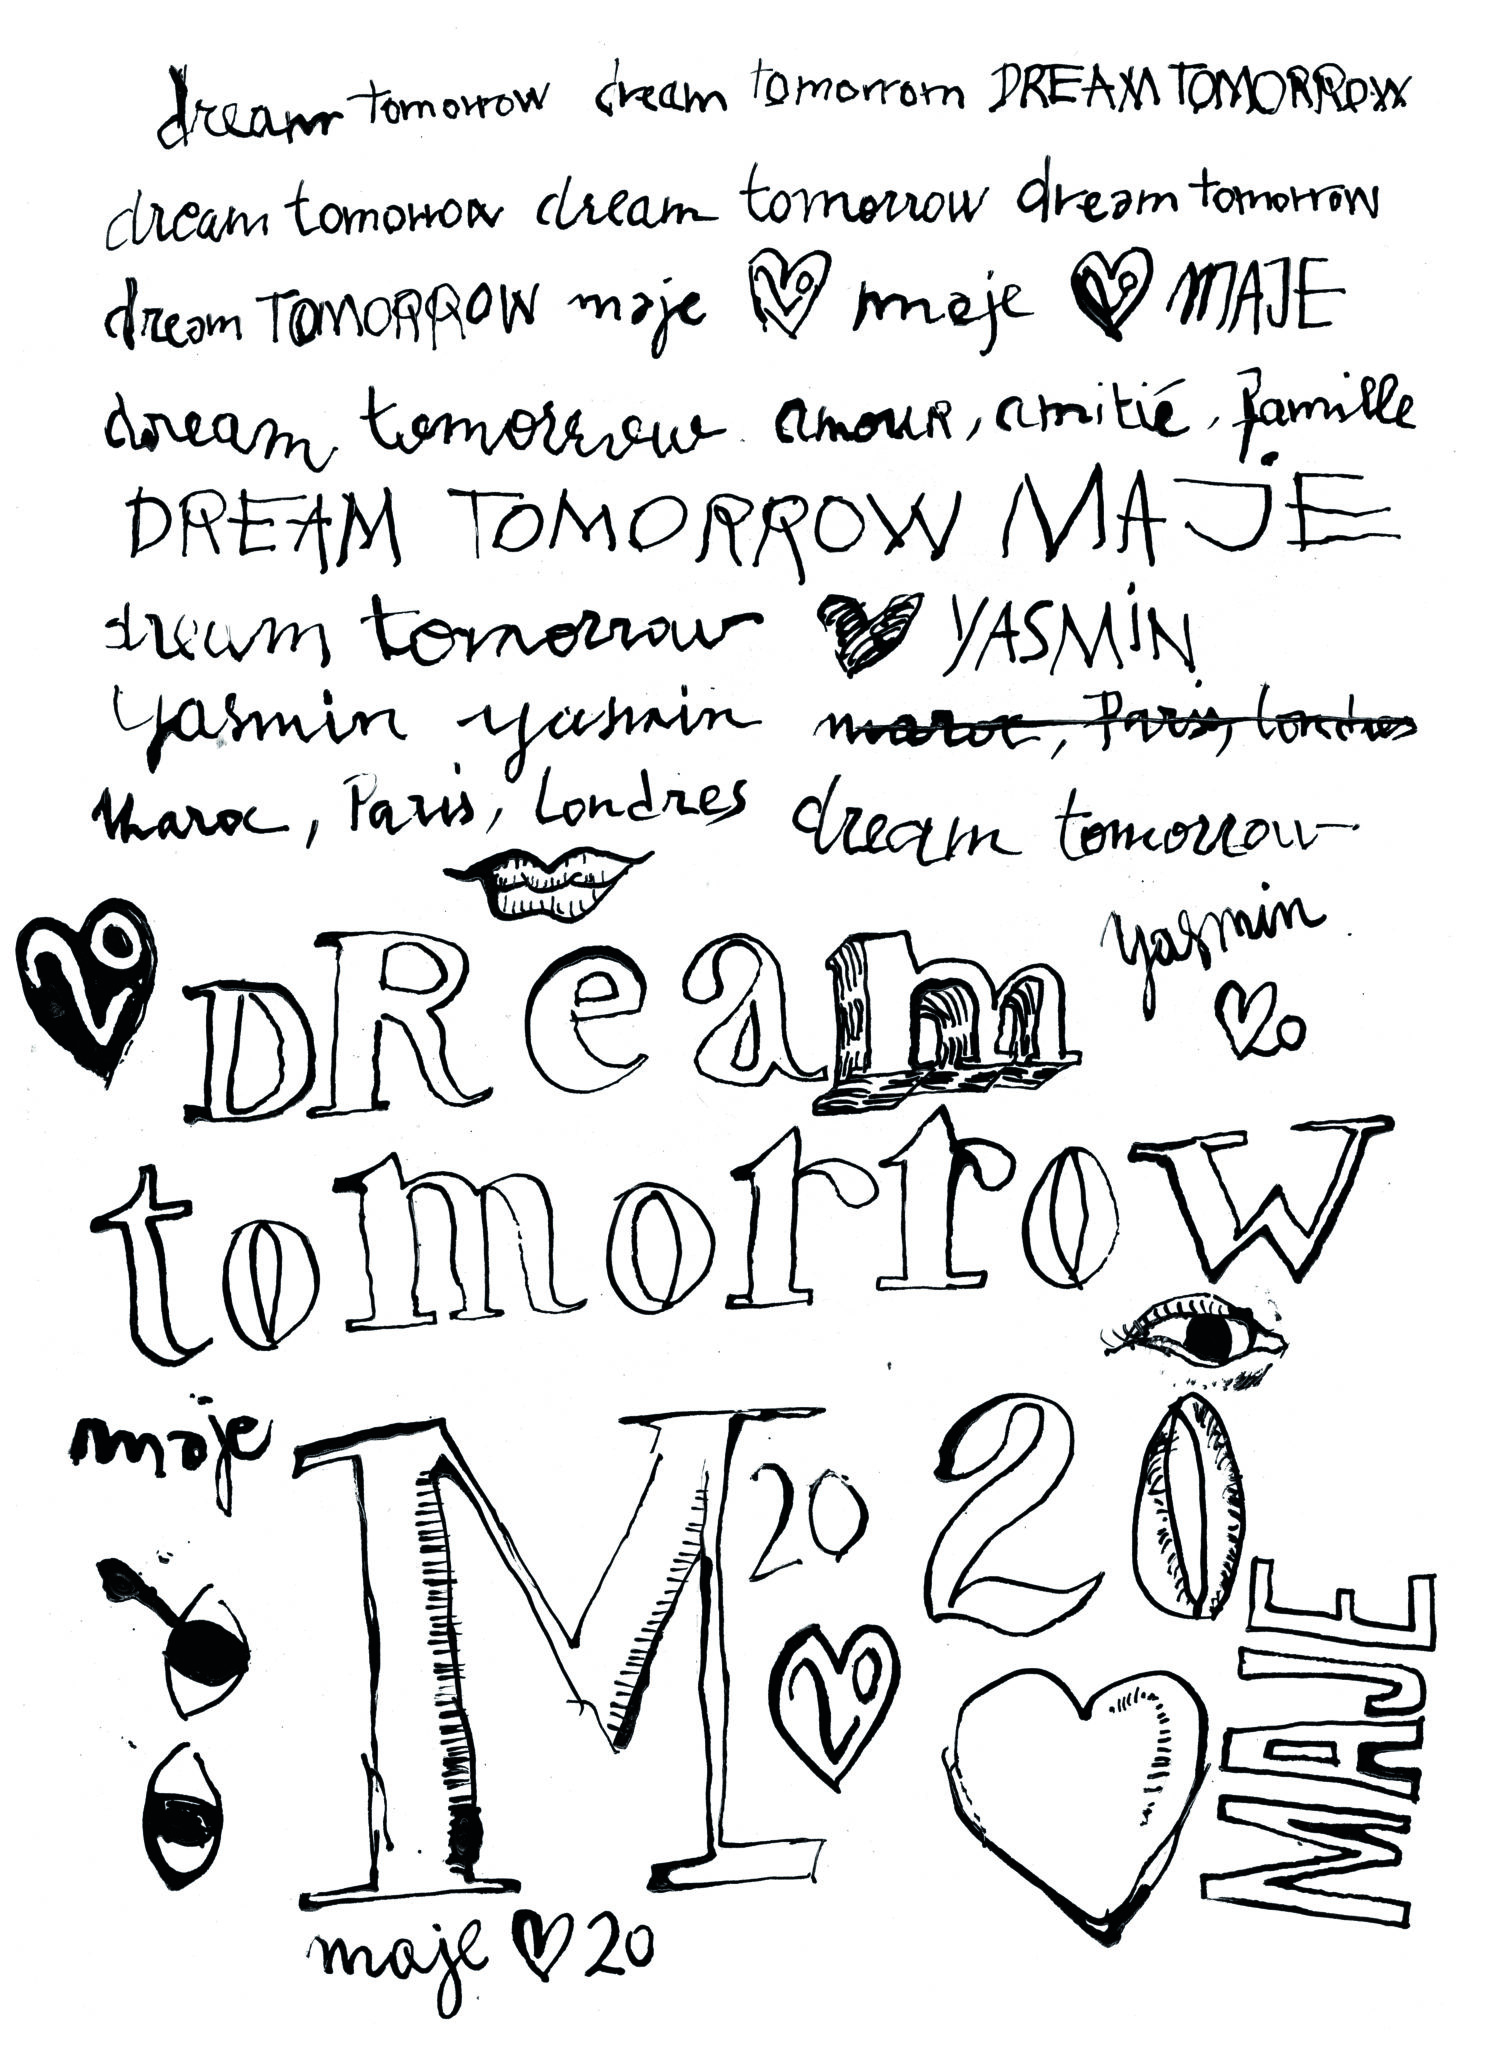 dream tomorrow dream tomorrow DREAM TOMORROW
dream tomorrow dream tomorrow dream tomorrow
dream TOMORROW maje 20 maje 20 MAJE
dream tomorrow amour, amitié, famille
DREAM TOMORROW MAJE
dream tomorrow YASMIN
Yasmin yasmin maroc, Paris, Londres
Maroc, Paris, Londres dream tomorrow
yasmin
20
20
DReam
tomorrow
maje
M
20
20
20
MAJE
maje 20